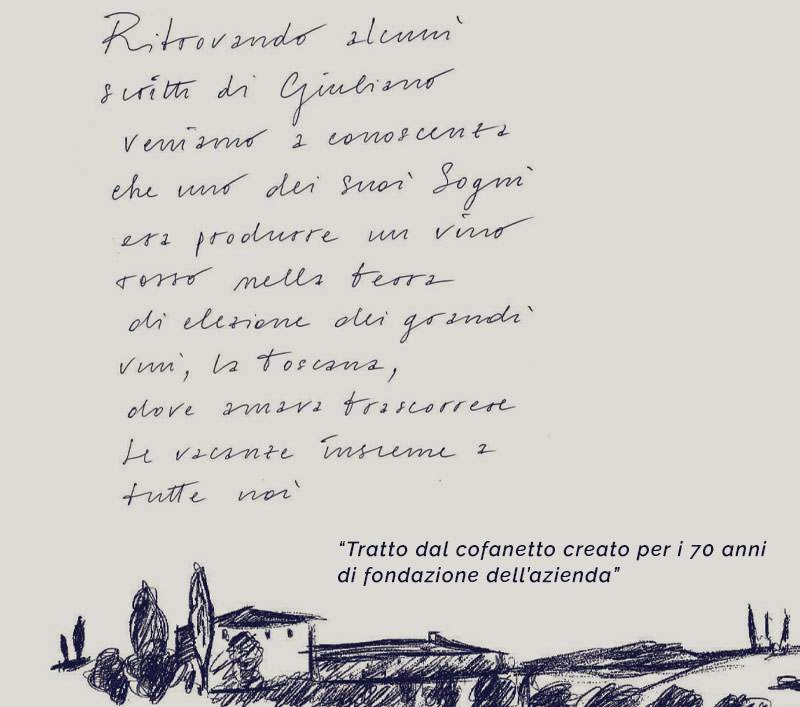 Ritrovando alcuni
scritti di Giuliano
veniamo a conoscenza
che uno dei suoi sogni
era produrre un vino
rosso nella terra
di elezione dei grandi
vini, la Toscana,
dove amava trascorrere
le vacanze insieme a
tutte noi
“Tratto dal cofanetto creato per i 70 anni
di fondazione dell’azienda”